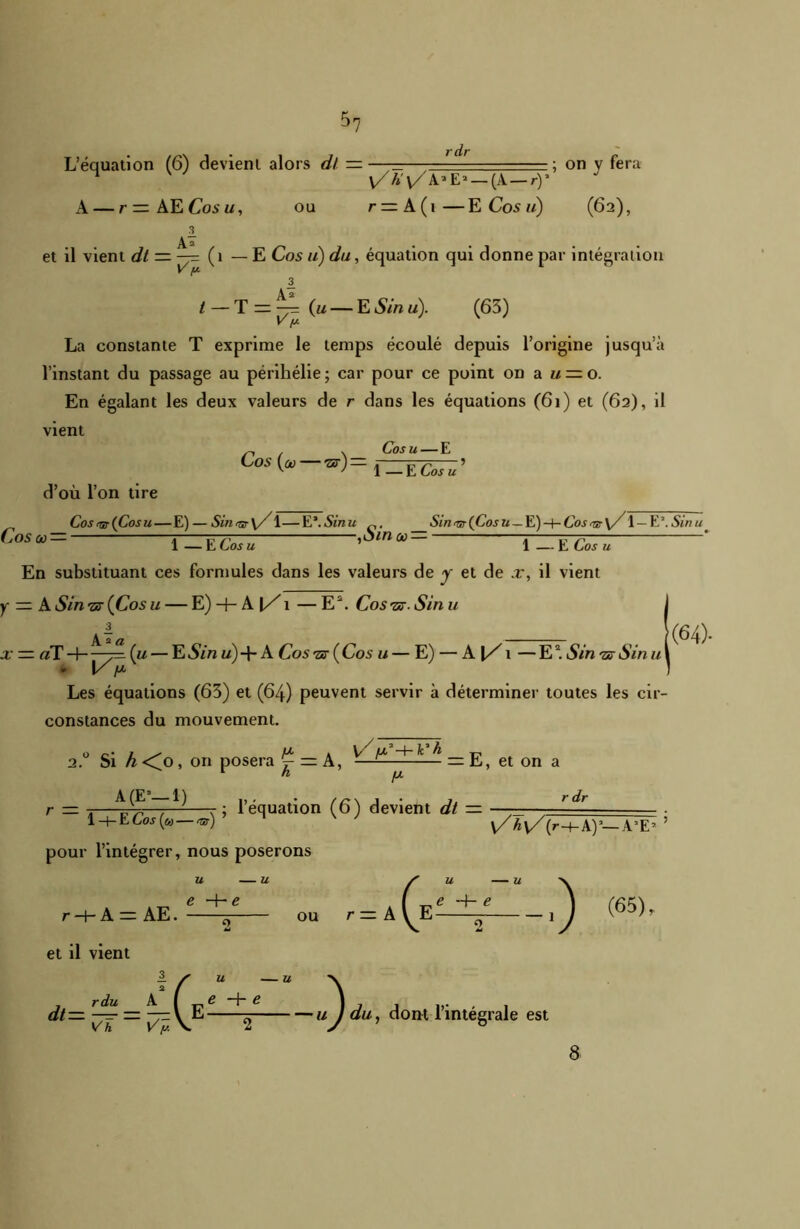 57
L'équation (6) devient alors dt = rdr / √h √A²E²—(A—r)² ; on y fera
A — r = AE Cos u, ou r = A (1 — E Cos u) (62),
et il vient dt = A^(3/2)/√μ (1 — E Cos u) du, équation qui donne par intégration
t — T = A^(3/2)/√μ (u — E Sin u). (63)
La constante T exprime le temps écoulé depuis l'origine jusqu'à
l'instant du passage au périhélie; car pour ce point on a u = 0.
En égalant les deux valeurs de r dans les équations (61) et (62), il
vient
Cos (ω — ϖ) = (Cos u — E) / (1 — E Cos u),
d'où l'on tire
Cos ω = (Cos ϖ (Cos u — E) — Sin ϖ √1—E². Sin u) / (1 — E Cos u), Sin ω = (Sin ϖ (Cos u — E) + Cos ϖ √1—E². Sin u) / (1 — E Cos u).
En substituant ces formules dans les valeurs de y et de x, il vient
y = A Sin ϖ (Cos u — E) + A √1 — E². Cos ϖ. Sin u
x = aT + A^(3/2) a/√μ (u — E Sin u) + A Cos ϖ (Cos u — E) — A √1 — E². Sin ϖ Sin u (64).
Les équations (63) et (64) peuvent servir à déterminer toutes les cir-
constances du mouvement.
2.° Si h < 0, on posera μ/h = A, √μ²+k²h / μ = E, et on a
r = A(E²—1) / (1+E Cos (ω—ϖ)) ; l'équation (6) devient dt = rdr / √h √(r+A)²—A²E² ;
pour l'intégrer, nous poserons
r + A = AE. (e^u + e^—u)/2 ou r = A (E (e^u + e^—u)/2 — 1) (65),
et il vient
dt = rdu/√h = A^(3/2)/√μ (E (e^u + e^—u)/2 — u) du, dont l'intégrale est
8